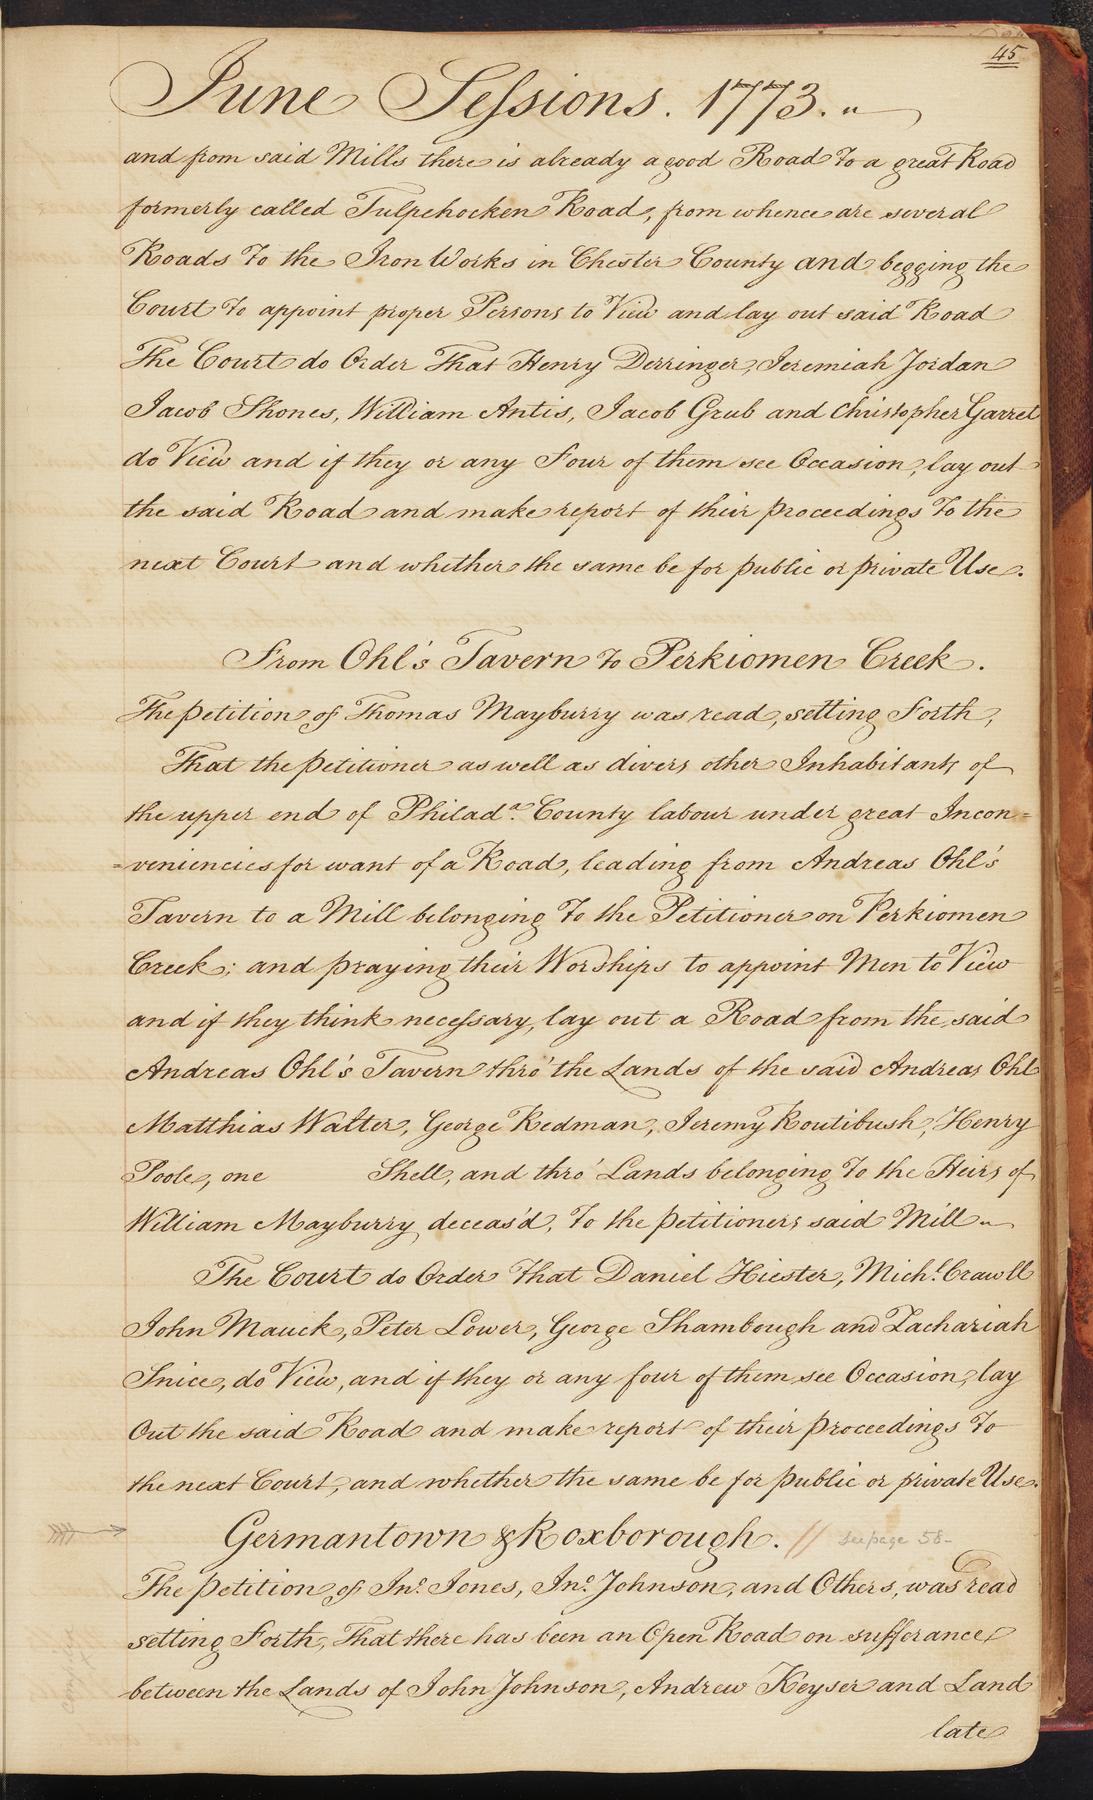 45
June Sessions. 1773. "
and from said Mills there is already a good Road To a great Road
formerly called Tulpehocken Road, from whence are several
Roads To the Iron Works in Chester County and begging the
Court To appoint proper Persons to View and lay out said Road
The Court do Order That Henry Derringer, Jeremiah Jordan
Jacob Shones, William Antis, Jacob Grub and Christopher Garret
do View and if they or any Four of them see Occasion, lay out
the said Road and make report of their proceedings To the
next Court and whether the same be for public or private Use.
From Ohl's Tavern To Perkiomen Creek.
The petition of Thomas Mayburry was read, setting Forth,
That the petitioner as well as divers other Inhabitants of
the upper end of Philada. County labour under great Incon=
=veniencies for want of a Road, leading from Andreas Ohl's
Tavern to a Mill belonging To the Petitioner on Perkiomen
Creek; and praying their Worships to appoint Men to View
and if they think necessary, lay out a Road from the said
Andreas Ohl's Tavern thro' the Lands of the said Andreas Ohl
Matthias Walter, George Redman, Jeremy Routibush, Henry
Poole, one Shell, and thro' Lands belonging To the Heirs of
William Mayburry deceas'd, To the petitioners said Mill "
The Court do Order That Daniel Hiester, Michl. Crawll
John Mauck, Peter Lower, George Shambough and Zachariah
Snice, do View, and if they or any four of them see Occasion, lay
Out the said Road and make report of their proceedings To
the next Court, and whether the same be for public or private Use.
Germantown & Roxborough. // see page 58-
The petition of Jno. Jones, Jno. Johnson, and Others, was read
setting Forth, That there has been an Open Road on sufferance
between the Lands of John Johnson, Andrew Keyser and Land
late